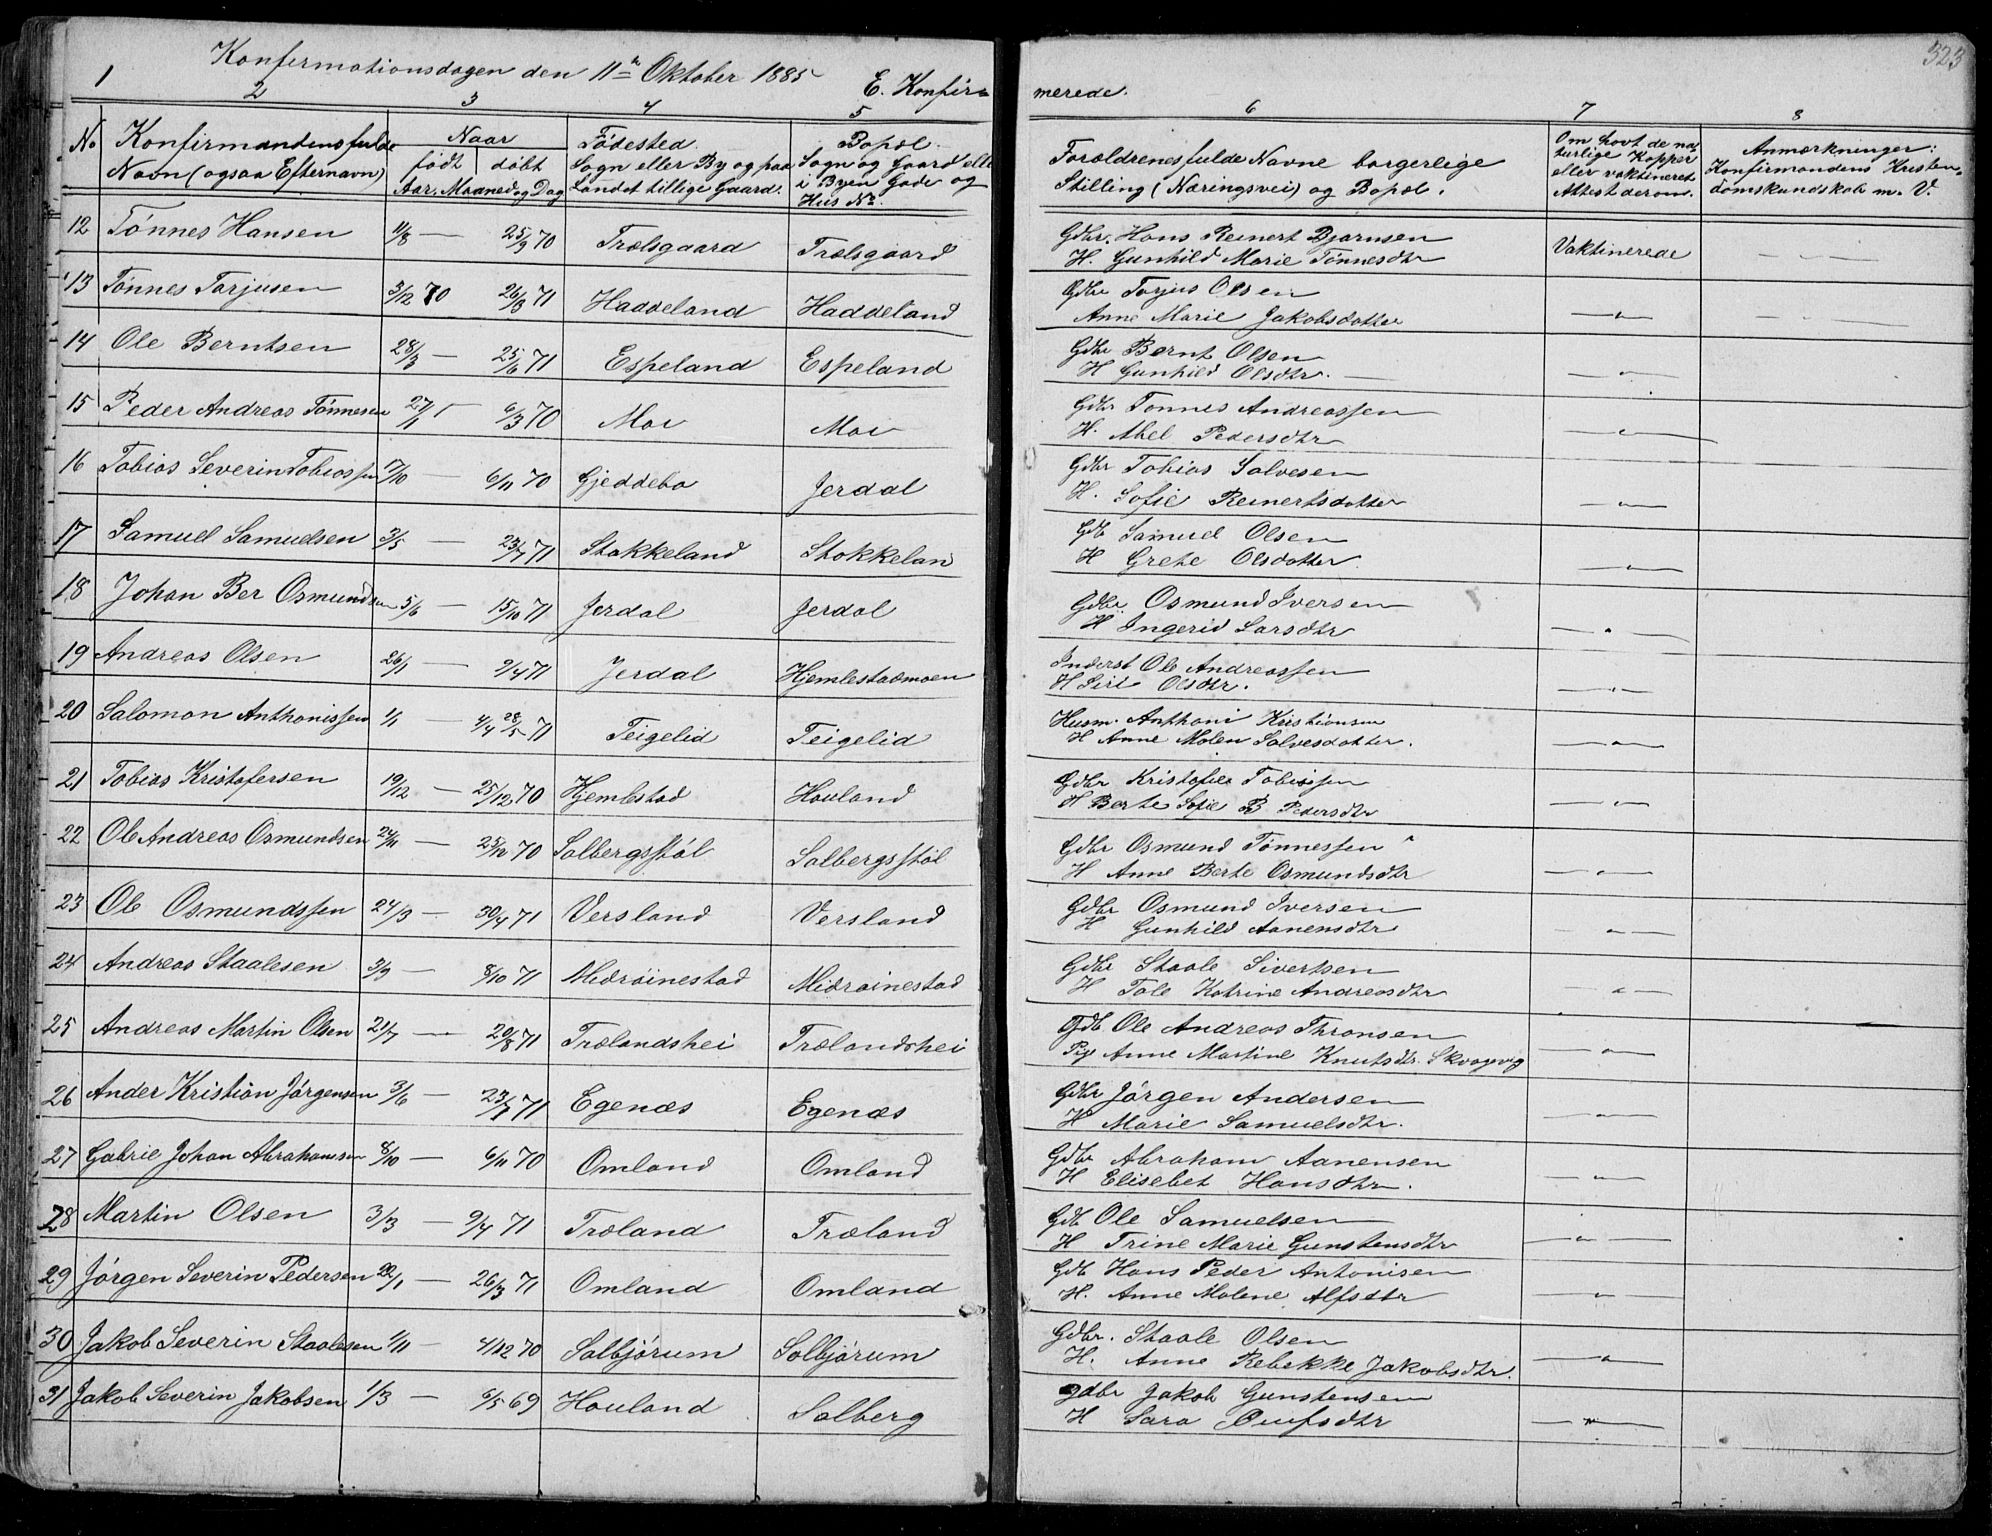 323
Konfirmationsdagen den 11te Oktober 1885
E. Konfir= merede.
1 2 3 4 5 6 7 8
No Konfirmandens fulde Navn (ogsaa Efternavn)
Naar født døbt Aar, Maaned og Dag
Fødested. Sogn eller By og paa Landet tillige Gaard.
Bopæl. Sogn og Gaard eller i Byen Gade og Hus No.
Forældrenes fulde Navne borgerlige Stilling (Næringsvei) og Bopæl.
Om havt de naturlige Kopper eller vaktineret Attest derom.
Anmærkninger: Konfirmandens Kristendomskundskab m. V.
12 Tønnes Hansen 11/8 — 25/9 70 Trælsgaard Trælsgaard Gdbr. Hans Reinert Bjørnsen Vaktinerede — " —
H. Gunhild Marie Tønnesdtr
13 Tønnes Tarjusen 3/12 70 26/8 71 Haddeland Haddeland Gdbr Tarjus Olsen
Anne Marie Jakobsdatter — " — — " —
14 Ole Berntsen 28/3 — 25/6 71 Espeland Espeland Gdbr Bernt Olsen
H Gunhild Olsdtr. — " —
15 Peder Andreas Tønnesen 27/1 — 6/3 70 Moi Moi Gdbr Tønnes Andreassen
H. Abel Pedersdtr — " —
16 Tobias Severin Tobiassen 17/10 — 6/11 70 Gjeddebo Jerdal Gdbr Tobias Salvesen
H. Sofie Reinertsdatter — " —
17 Samuel Samuelsen 3/5 — 23/7 71 Stokkeland Stokkelan Gdb Samuel Olsen
H Grete Olsdatter. — " —
18 Johan Ber Osmundsen 5/6 — 15/10 71 Jerdal Jerdal Gdbr Osmund Iversen
H Ingerid Larsdtr — " —
19 Andreas Olsen 26/1 — 9/4 71 Jerdal Hjemlestadmoen Inderst Ole Andreassen
H Siri Olsdtr. — " —
20 Salomon Anthonissen 1/1 — 4/4 28/5 71 Teigelid Teigelid Husm. Anthoni Kristiansen
H Anne Malen Salvesdatter. — " —
21 Tobias Kristofersen 19/12 — 25/12 70 Hjemlestad Houland Gdbr Kristofer Tobiassen
H Berte Sofie B Pedersdtr — " —
22 Ole Andreas Osmundsen 24/11 — 25/12 70 Solbergsstøl Solbergsstøl Gdbr Osmund Tønnessen
H Anne Berte Osmundsdtr — " —
23 Ole Osmundssen 24/3 — 30/4 71 Versland Versland Gdbr Osmund Iversen
H Gunhild Aanensdtr — " —
24 Andreas Staalesen 3/9 — 8/10 71 Midrøinestad Midrøinestad Gdbr Staale Sivertsen
H Tale Katrine Andreasdtr — " —
25 Andreas Martin Olsen 21/7 — 20/8 71 Trælandshei Trælandshei Gdb Ole Andreas Thronsen
Pige Anne Martine Knutsdtr. Skvagevig — " —
26 Ander Kristian Jørgensen 3/6 — 23/7 71 Egenæs Egenæs Gdbr Jørgen Andersen
H Marie Samuelsdtr. — " —
27 Gabrie Johan Abrahamsen 8/10 — 6/11 70 Omland Omland Gdbr Abraham Aanensen
H Elisebet Hansdtr. — " —
28 Martin Olsen 3/3 — 9/4 71 Træland Træland Gdb Ole Samuelsen
H Trine Marie Gunstensdtr — " —
29 Jørgen Severin Pedersen 22/1 — 26/3 71 Omland Omland Gdb Hans Peder Antonisen
H. Anne Malene Alfsdtr — " —
30 Jakob Severin Staalesen 1/11 — 4/12 70 Solbjørum Solbjørum Gdbr. Staale Olsen
H. Anne Rebekke Jakobsdtr. — " —
31 Jakob Severin Jakobsen 1/3 — 6/5 69 Houland Solberg gdbr Jakob Gunstensen
H Sara Ouufsdtr — " —